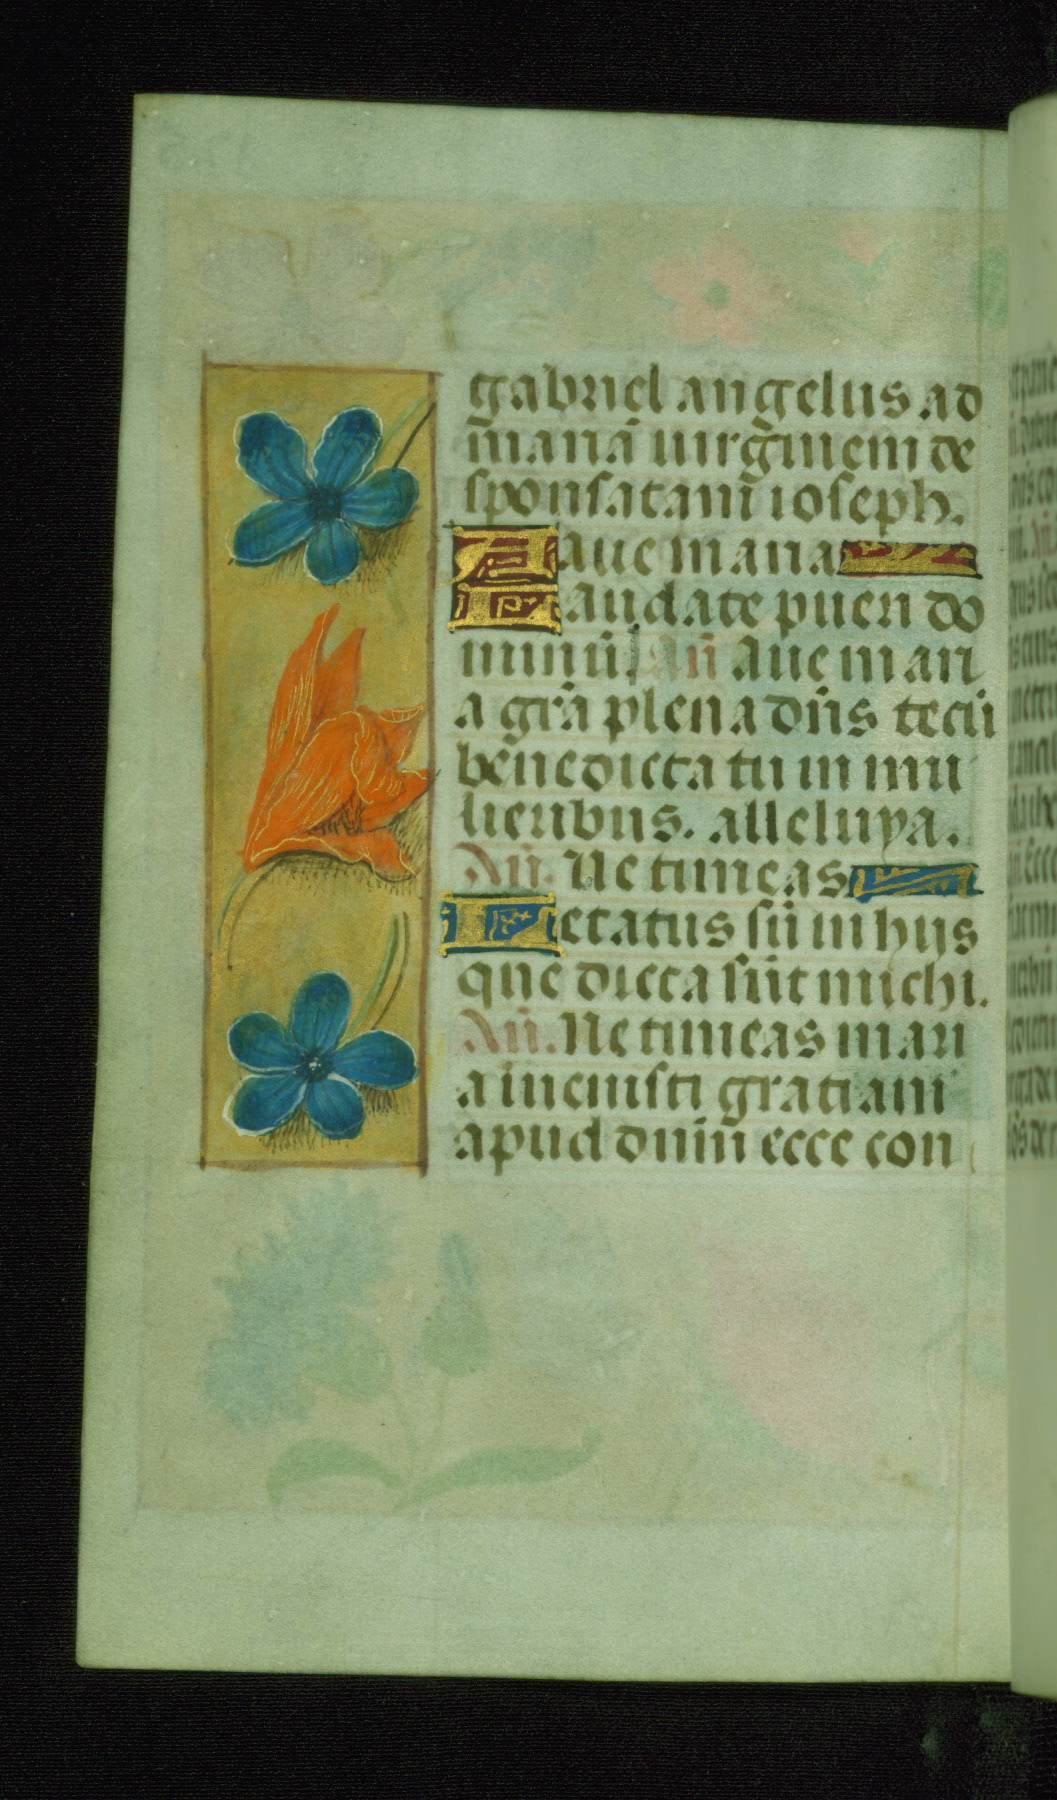 gabriel angelus ad
mariā uirgīnem de
sponsatam ioseph.
Aaue maria
Laudate pueri do
minū. Añ Aue mari
a grā plena dn̄s tecū
benedicta tu in mu
lieribus. alleluya.
Añ. Ne timeas
Letatus sū in hys
que dicta sūt michi.
Añ. Ne timeas mari
a inuenisti gratiam
apud dnm̄ ecce con